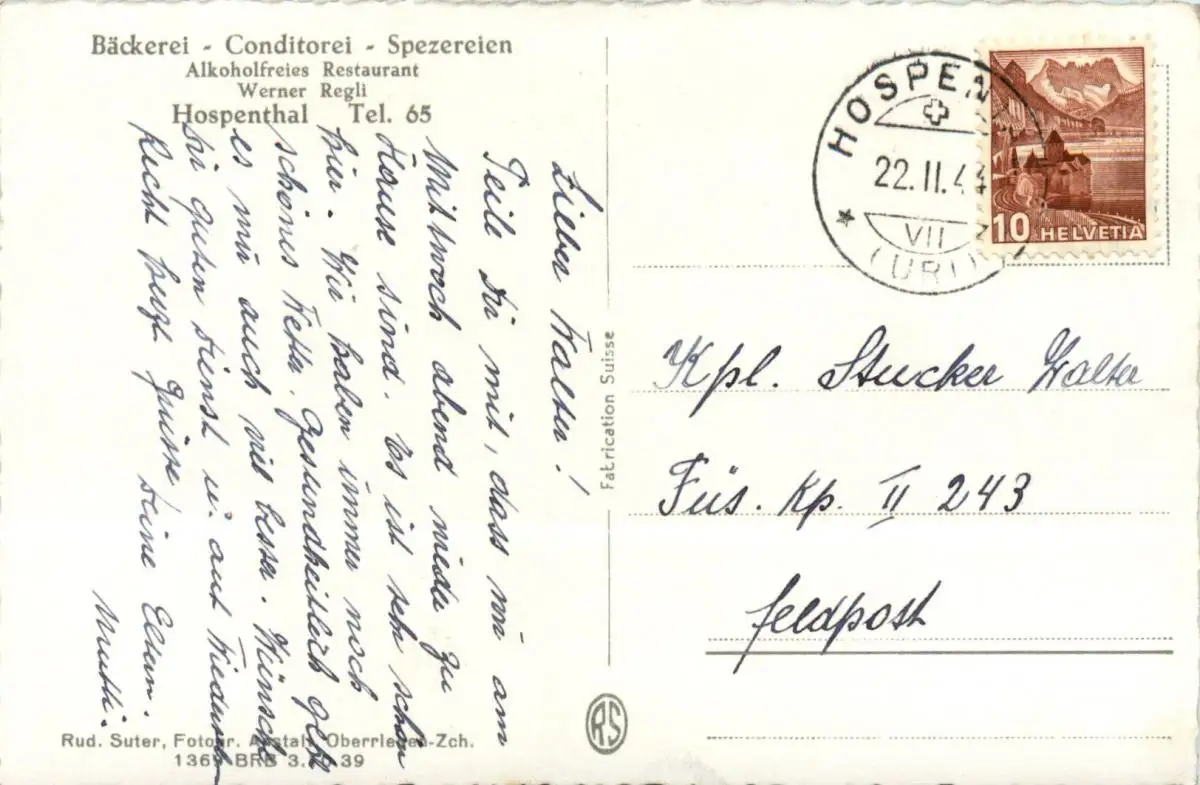 Bäckerei - Conditorei - Spezereien
Alkoholfreies Restaurant
Werner Regli
Hospenthal Tel. 65
Lieber Walter!
Teile Dir mit, dass wir am
Mittwoch abend wieder zu
Hause sind. Es ist sehr schön
hier. Wir haben immer noch
schönes Wetter. Gesundheitlich geht
es mir auch viel besser. Wünsche
Dir guten Dienst u. auf Wiedersehn
Recht herzl. Grüsse Deine Eltern.
Mutti.
Rud. Suter, Fotogr. Anstalt, Oberrieden-Zch.
1369 BRB 3. 39
Fabrication Suisse
RS
HOSPENT
22.II.44
VII
(URI)
10 HELVETIA
Kpl. Stucker Walter
Füs. Kp. II 243
Feldpost